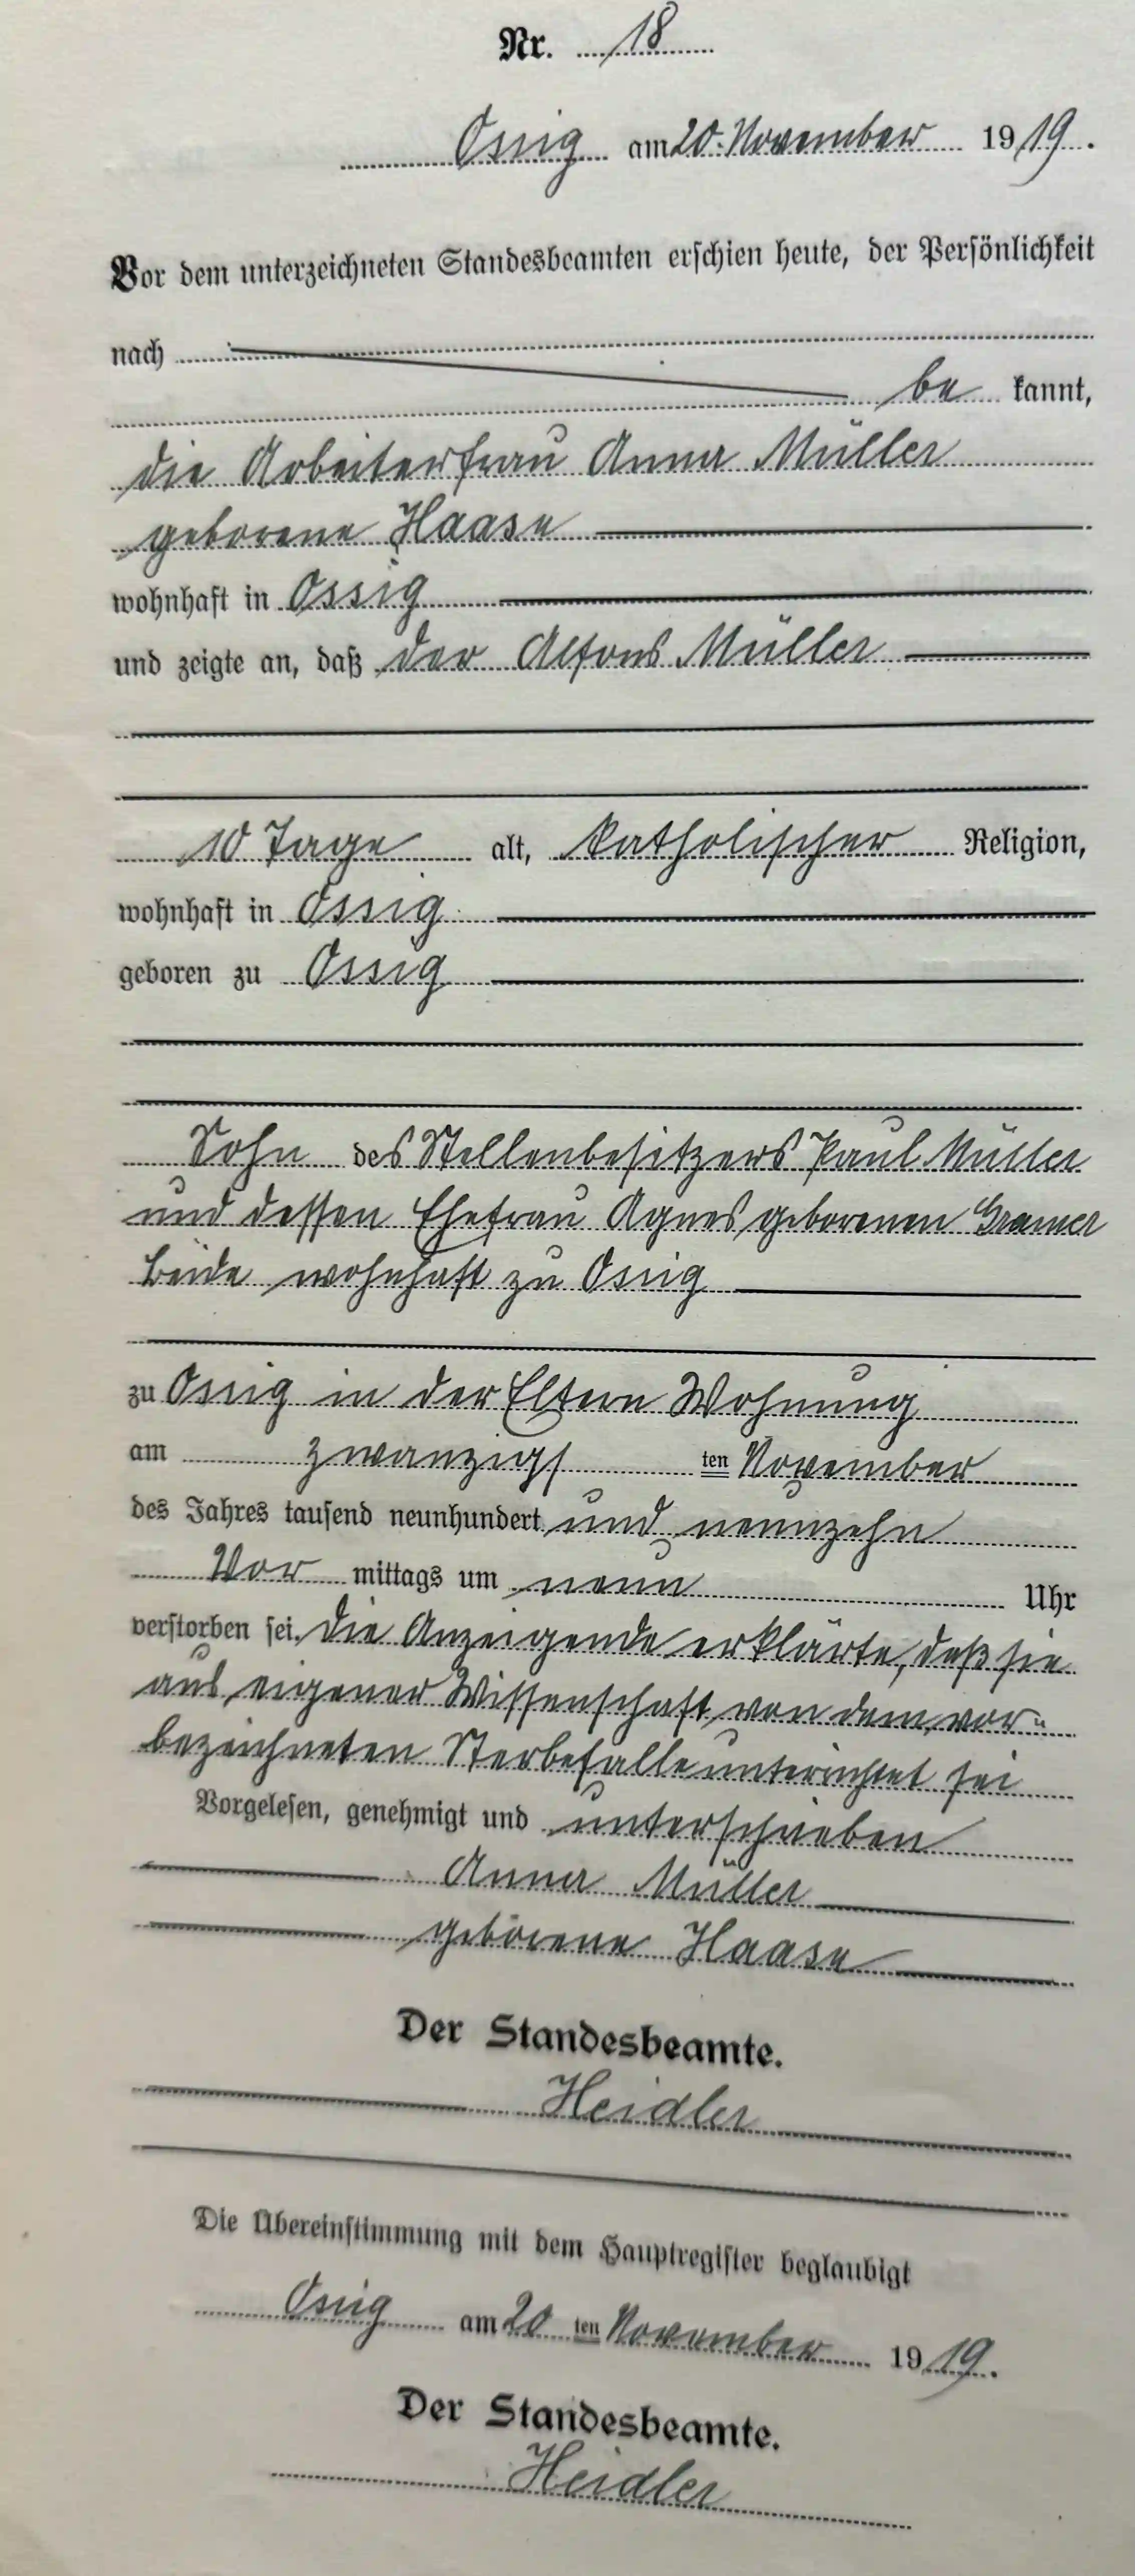 Nr. 18
Ossig am 20. November 1919.
Vor dem unterzeichneten Standesbeamten erschien heute, der Persönlichkeit
nach
be kannt,
die Arbeiterfrau Anna Müller
geborene Haase
wohnhaft in Ossig
und zeigte an, daß der Alfons Müller
10 Tage alt, katholischer Religion,
wohnhaft in Ossig
geboren zu Ossig
Sohn des Stellenbesitzers Paul Müller
und dessen Ehefrau Agnes geborenen Gramer
beide wohnhaft zu Ossig
zu Ossig in der Eltern Wohnung
am zwanzigs ten November
des Jahres tausend neunhundert und neunzehn
Vor mittags um neun Uhr
verstorben sei. Die Anzeigende erklärte, daß sie
aus eigener Wissenschaft von dem vor-
bezeichneten Sterbefalle unterrichtet sei
Vorgelesen, genehmigt und unterschrieben
Anna Müller
geborene Haase
Der Standesbeamte.
Heidler
Die Übereinstimmung mit dem Hauptregister beglaubigt
Ossig am 20 ten November 1919.
Der Standesbeamte.
Heidler